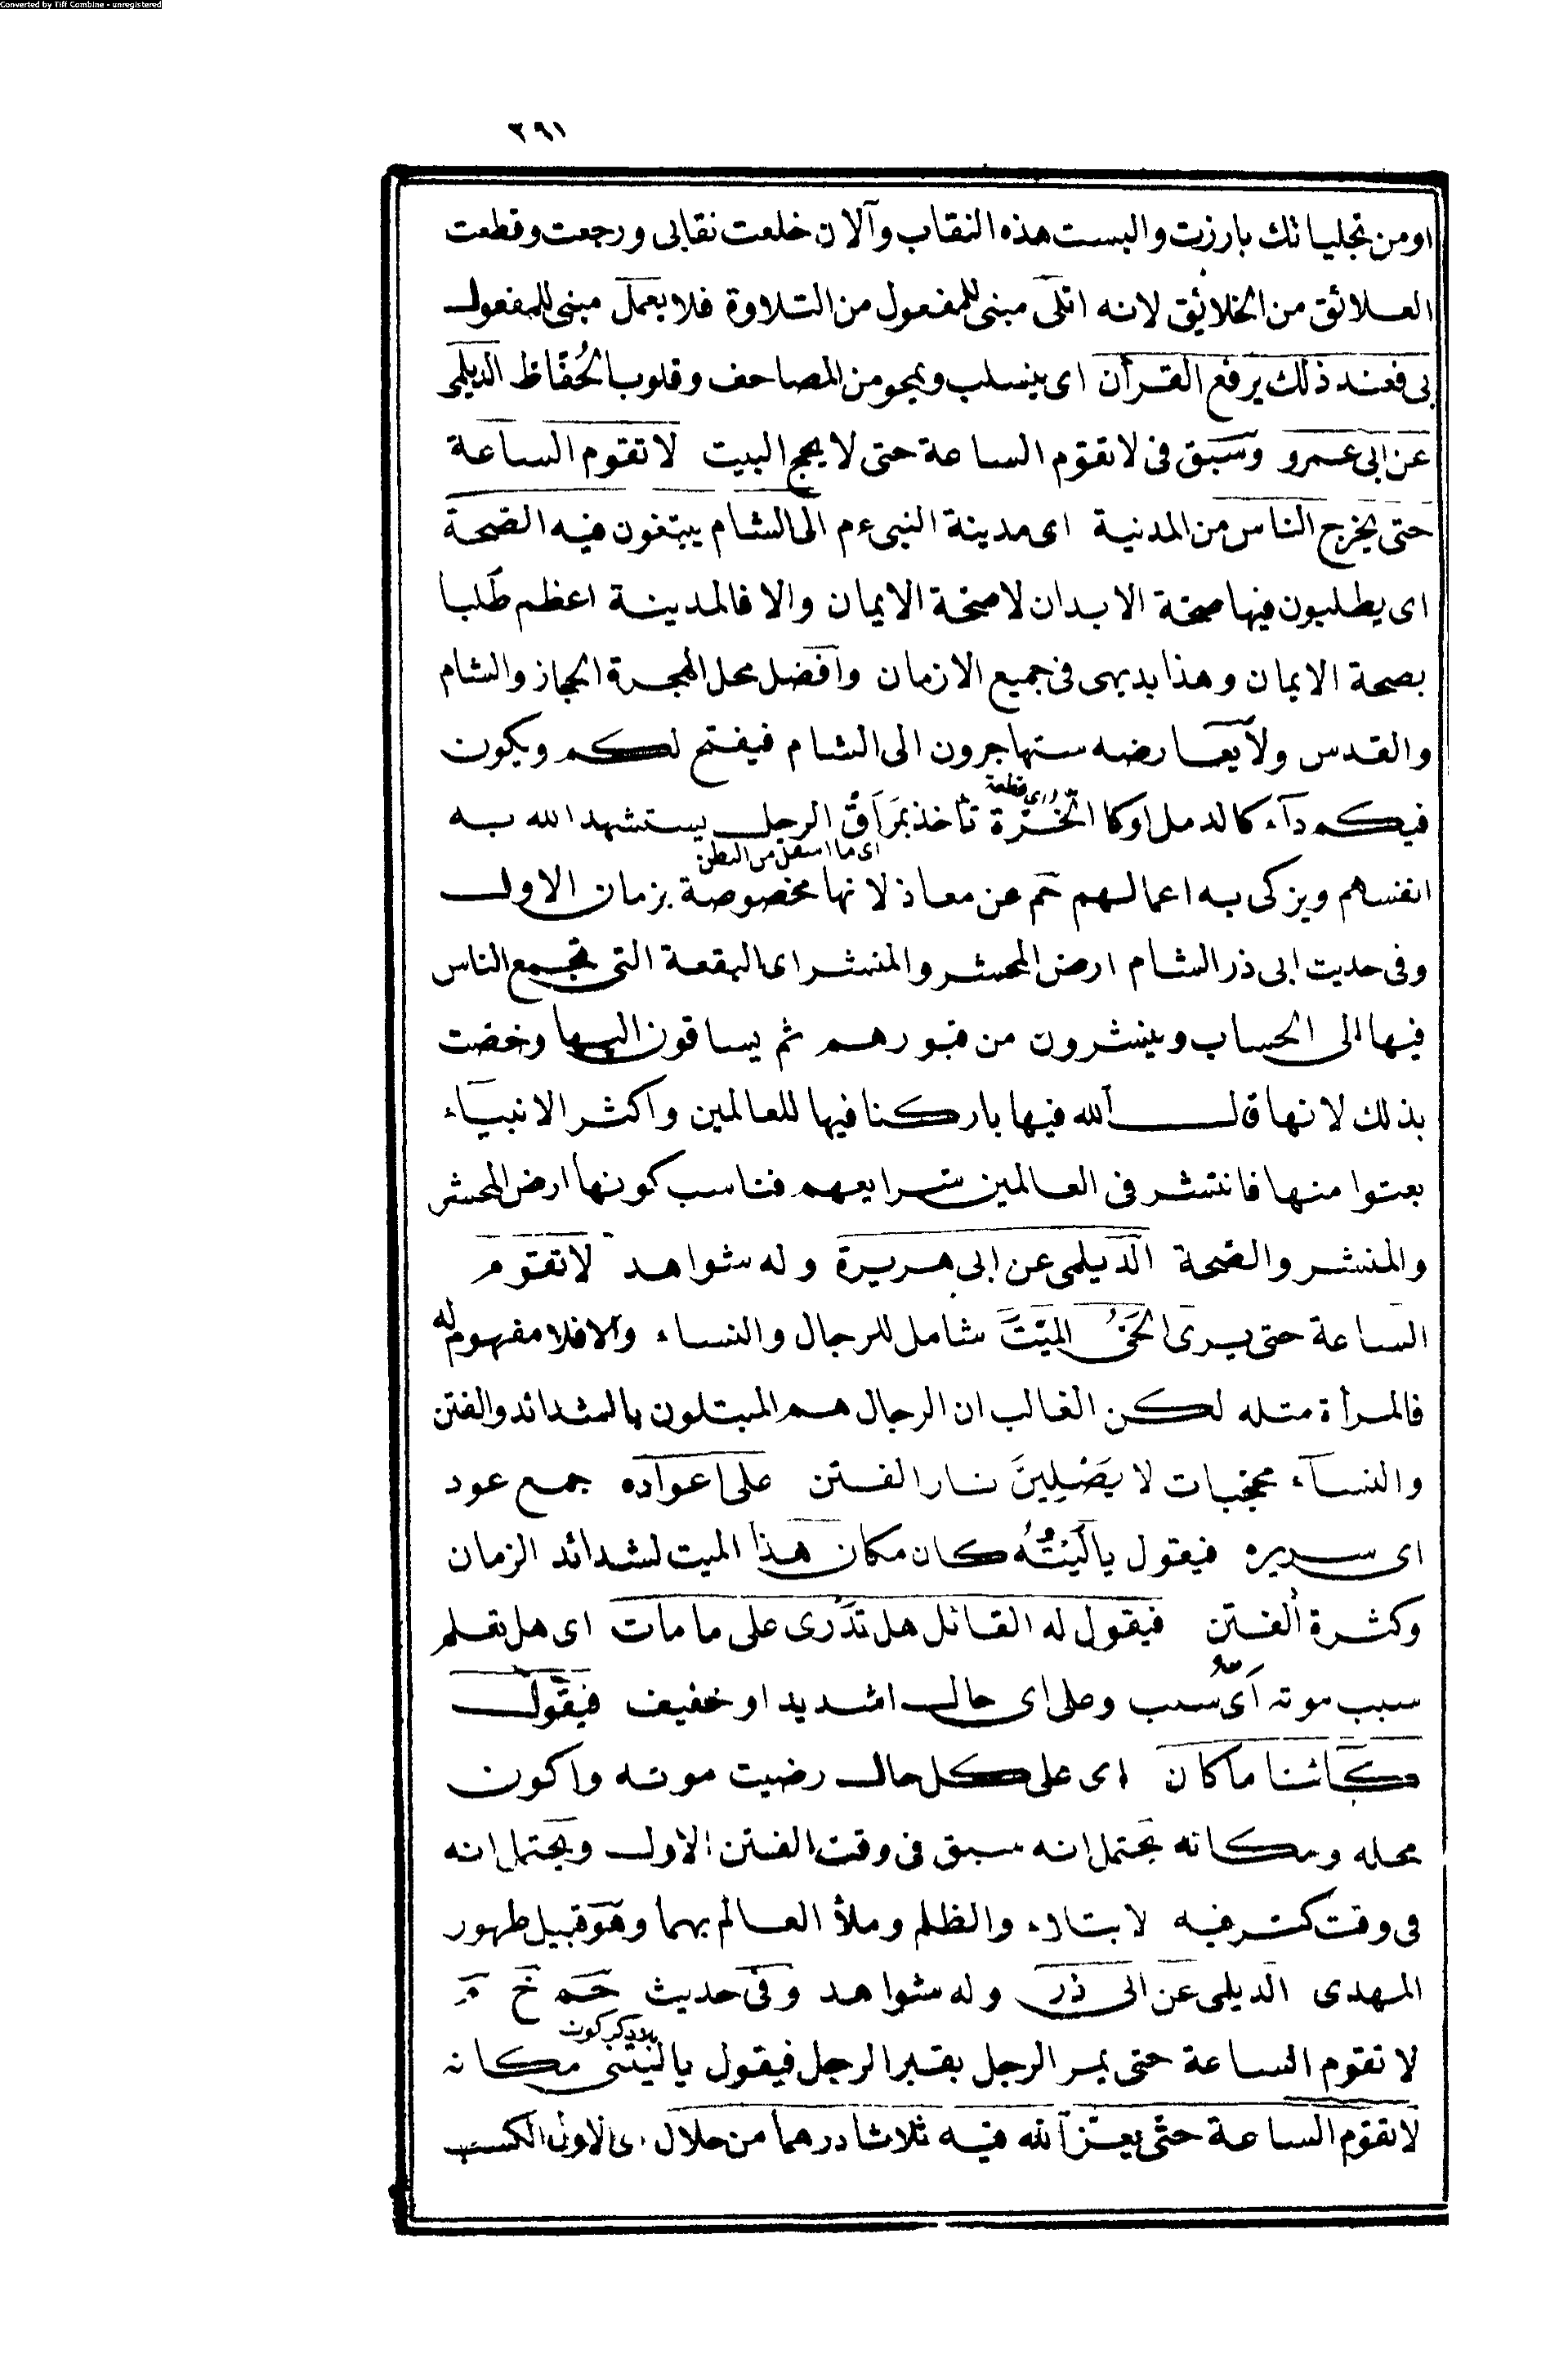 Converted by Tiff Combine - unregistered
٣٩١
اومن تجلياتك بارزت والبست هذه النقاب وآلان خلعت نقابى ورجعت وقطعت
العلائق من الخلائيق لانه اتلى مبنى للمفعول من التلاوة فلا يعمل مبنى للمفعول
بى فعند ذلك يرفع القرأن اى ينسلب ويمحو من المصاحف وقلوب الحُفّاظ الديلمى
عن ابى عمرو وسبق فى لا تقوم الساعة حتى لا يحج البيت لا تقوم الساعة
حتى يخرج الناس من المدنية اى مدينة النبى ءم الى الشام يبتغون فيه الصحة
اى يطلبون فيها صحة الابدان لا صحة الايمان والا فالمدينة اعظم طلبا
بصحة الايمان وهذا بديهى فى جميع الازمان وافضل محل الهجرة الحجاز والشام
والقدس ولا يعارضه ستهاجرون الى الشام فيفتح لكم ويكون
فيكم دآء كالدمل اوكا الخزّة تأخذ بمَرَاقّ الرجل يستشهد الله به
اى قطعة
اى ما اسفل من البطن
انفسهم ويزكى به اعمالهم حم عن معاذ لانها مخصوصة بزمان الاول
وفى حديث ابى ذر الشام ارض المحشر والمنشر اى البقعة التى تجمع الناس
فيها الى الحساب وينشرون من قبورهم ثم يساقون اليها وخصت
بذلك لانها قال الله فيها باركنا فيها للعالمين واكثر الانبياء
بعثوا منها فانتشر فى العالمين شرايعهم فناسب كونها ارض المحشر
والمنشر والصحة الديلمى عن ابى هريرة وله شواهد لا تقوم
الساعة حتى يرى الحَىُّ الميّتَ شامل للرجال والنساء والا فلا مفهوم له
فالمرأة مثله لكن الغالب ان الرجال هم المبتلون بالشدائد والفتن
والنسآء محجبات لا يَصْلِينَ نار الفتن على اعواده جمع عود
اى سريره فيقول يا لَيْتَهُ كان مكان هذا الميت لشدائد الزمان
وكثرة الفتن فيقول له القائل هل تَدْرى على ما مات اى هل تعلم
سبب موته اىّ سبب وعلى اى حال اشديد او خفيف فيقول
كائنا ما كان اى على كل حال رضيت موته واكون
محله ومكانه يحتمل انه سبق فى وقت الفتن الاول ويحتمل انه
فى وقت كثر فيه لابتلاء والظلم وملأ العالم بهما وهو قبيل ظهور
المهدى الديلمى عن ابى ذر وله شواهد وفى حديث حم خ م
لا تقوم الساعة حتى يمر الرجل بقبر الرجل فيقول يا ليتنى مكانه
لا تقوم الساعة حتى يعز الله فيه ثلاثا درهما من حلال اى لاول الكسب